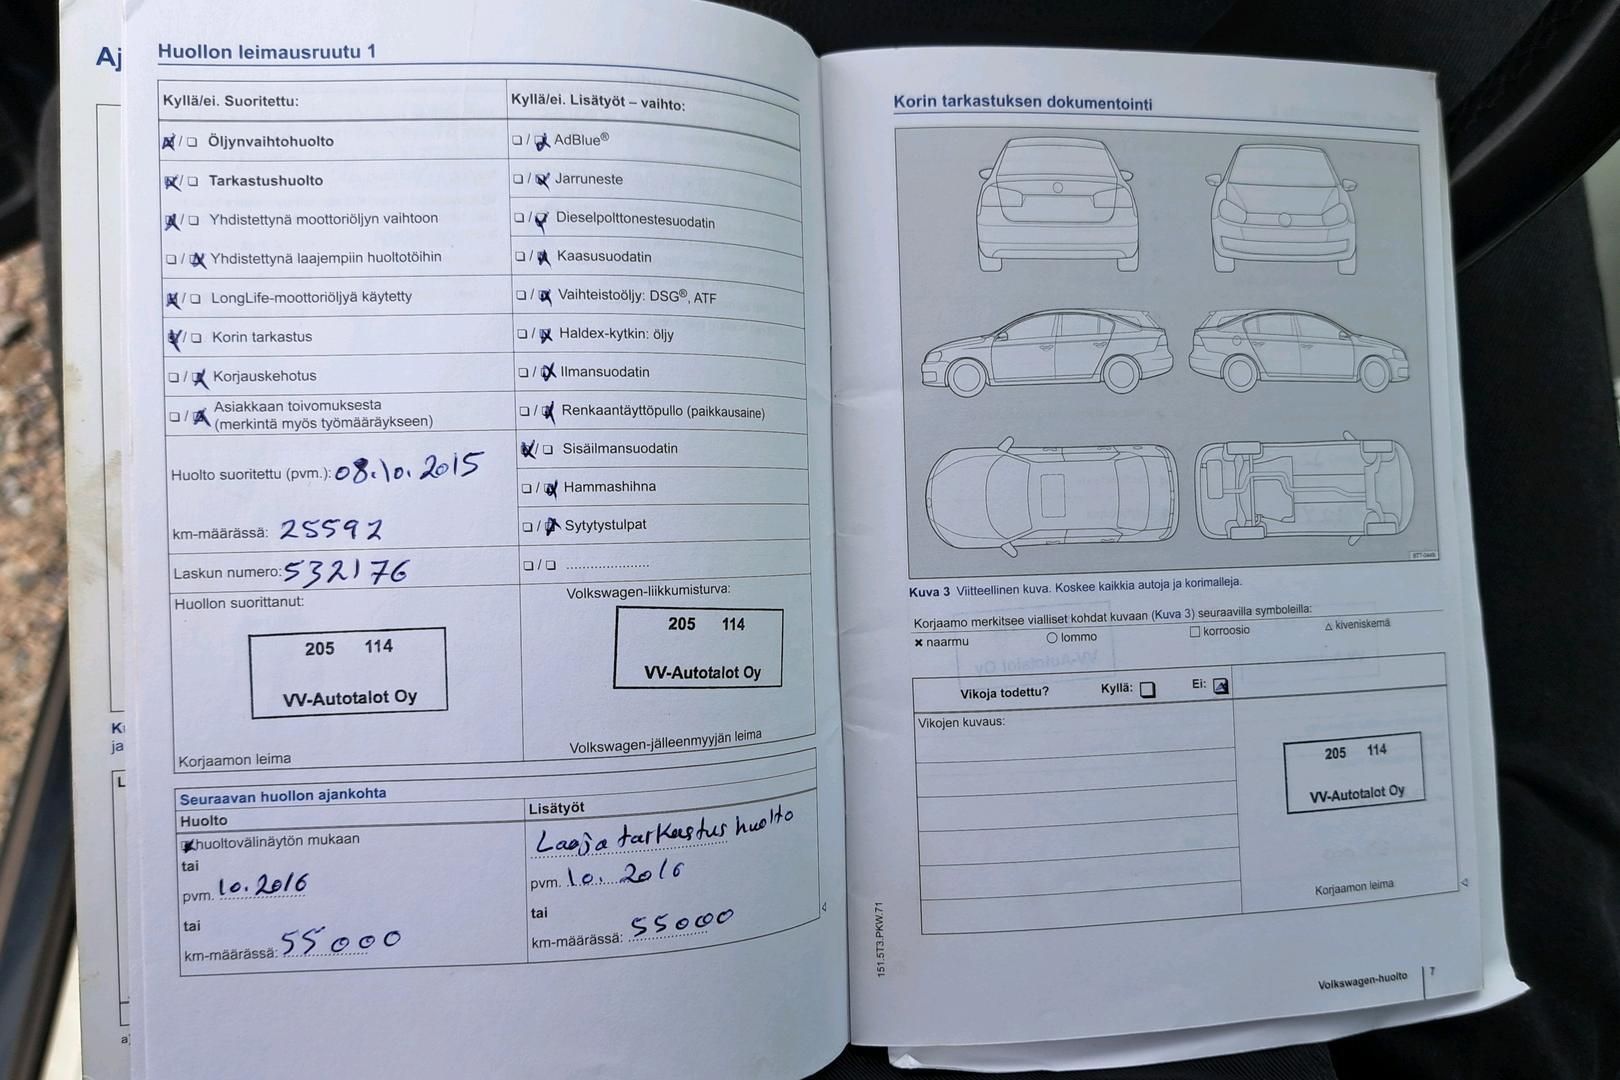 Aj
Huollon leimausruutu 1
Kyllä/ei. Suoritettu:
Öljynvaihtohuolto
Tarkastushuolto
Yhdistettynä moottoriöljyn vaihtoon
Yhdistettynä laajempiin huoltotöihin
LongLife-moottoriöljyä käytetty
Korin tarkastus
Korjauskehotus
Asiakkaan toivomuksesta
(merkintä myös työmääräykseen)
Huolto suoritettu (pvm.): 08.10.2015
km-määrässä: 25592
Laskun numero: 532176
Huollon suorittanut:
205 114
VV-Autotalot Oy
Korjaamon leima
Kyllä/ei. Lisätyöt – vaihto:
AdBlue®
Jarruneste
Dieselpolttonestesuodatin
Kaasusuodatin
Vaihteistoöljy: DSG®, ATF
Haldex-kytkin: öljy
Ilmansuodatin
Renkaantäyttöpullo (paikkausaine)
Sisäilmansuodatin
Hammashihna
Sytytystulpat
Volkswagen-liikkumisturva:
205 114
VV-Autotalot Oy
Volkswagen-jälleenmyyjän leima
Seuraavan huollon ajankohta
Huolto
huoltovälinäytön mukaan
tai
pvm. 10.2016
tai
km-määrässä: 55000
Lisätyöt
Laaja tarkastus huolto
pvm. 10. 2016
tai
km-määrässä: 55000
Korin tarkastuksen dokumentointi
Kuva 3 Viitteellinen kuva. Koskee kaikkia autoja ja korimalleja.
Korjaamo merkitsee vialliset kohdat kuvaan (Kuva 3) seuraavilla symboleilla:
naarmu lommo korroosio kiveniskemä
Vikoja todettu? Kyllä: Ei:
Vikojen kuvaus:
205 114
VV-Autotalot Oy
Korjaamon leima
151.5T3.PKW.71
Volkswagen-huolto 7